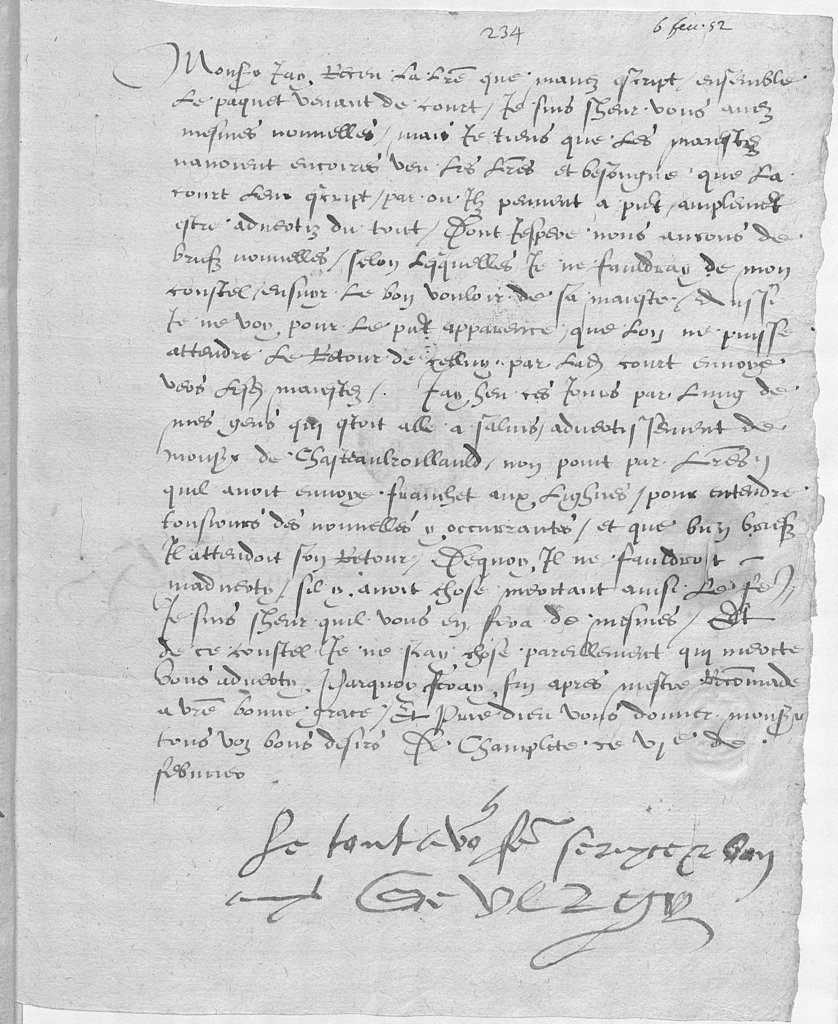 234
6 feu. 52
Monsr Jay Receu La Lre que mauez escript ensemble
Le pacquet venant de court / Je suis sheur vous auez
mesmes nouuelles / mais Je tiens que Les maiestez
nauoient encoires veu Les Lres et besongne que La
court Leur escript / par ou Ilz peuuent a pnt amplement
estre aduertiz du tout / Dont Jespere nous aurons de
briefz nouuelles / selon Lesquelles Je ne fauldray de mon
coustel ensuyr Le bon vouloir de sa maieste / Aussi
Je ne voy pour Le pnt apparence que Lon ne puisse
attendre Le Retour de celluy par Lad court enuoye
vers Lesd maiestez / . Jay heu ces Jours par Lung de
mes gens qui estoit alle a salins / aduertissement de
monsr de Chasteaulroillauld / non point par Lres
quil auoit enuoye franchet aux Lighues / pour entendre
tousiours des nouuelles y occurrantes / et que bien brief
Il attendoit son Retour / Dequoy Il ne fauldroit
maduerty / sil y auoit chose meritant ainsi Le
Je suis sheur quil vous en fera de mesmes / Et
de ce coustel Je ne scay chose pareillement qui merite
vous aduerty / Parquoy feray fin apres mestre Recommade
a vre bonne grace / Et Prie dieu vous donner monsr
tous voz bons desirs De Champlite ce vje de
feburier
Le tout vre seruiteur bon
amy